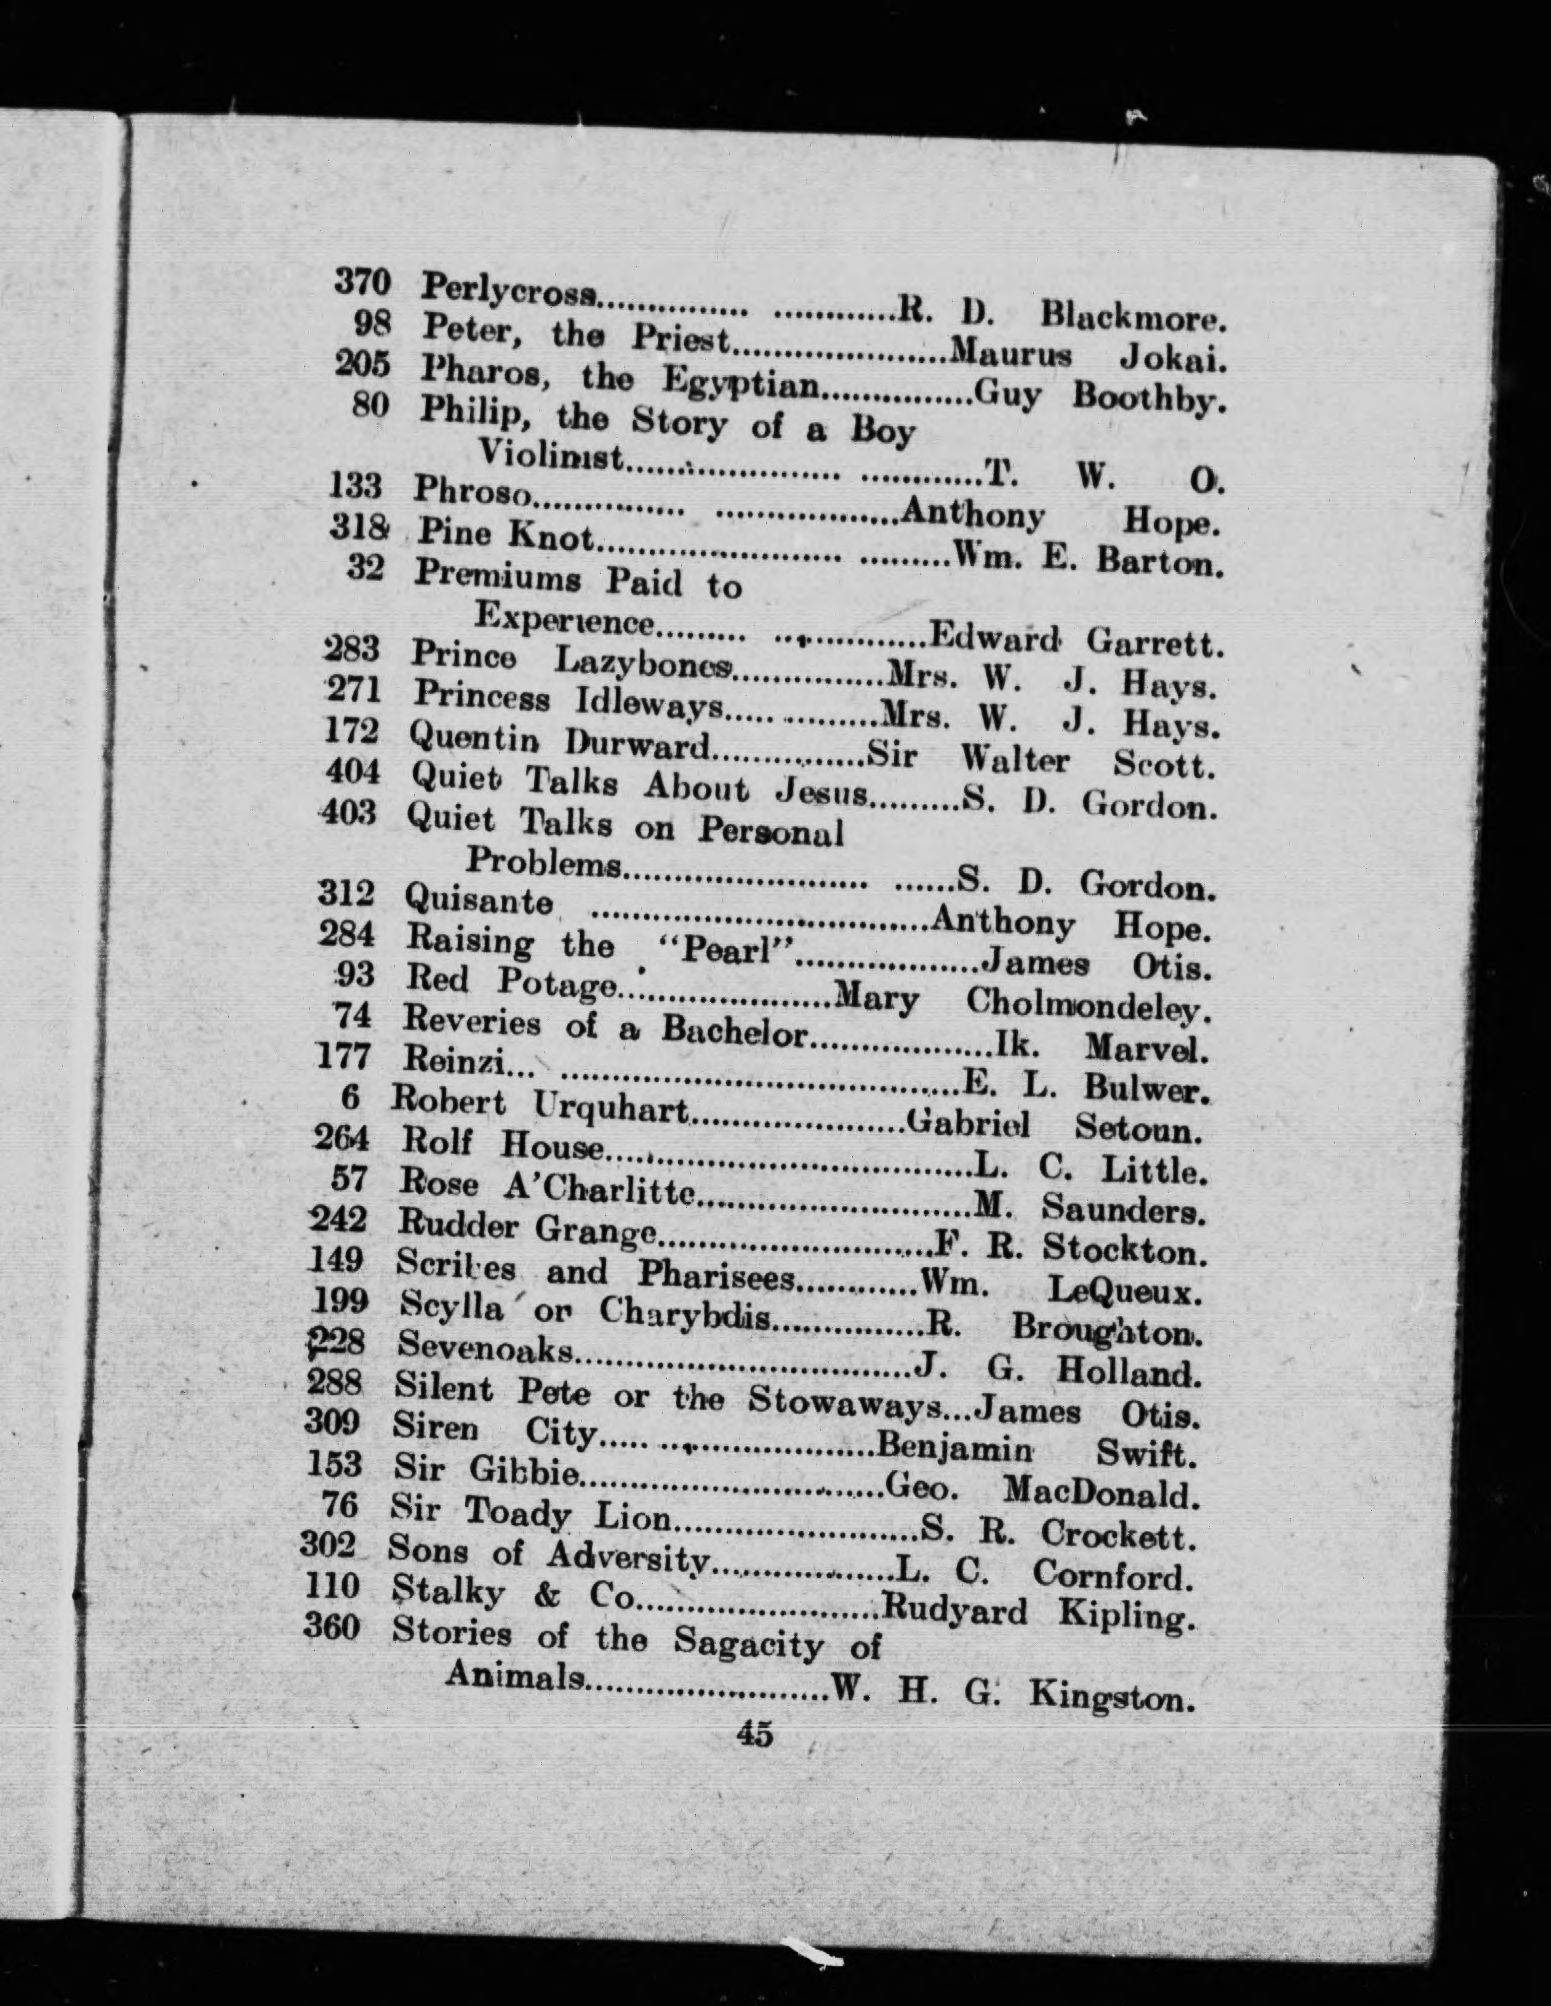 370 Perlycross............... ............R. D. Blackmore.
98 Peter, the Priest.....................Maurus Jokai.
205 Pharos, the Egyptian...............Guy Boothby.
80 Philip, the Story of a Boy
Violinist..................... ............T. W. O.
133 Phroso............... ..................Anthony Hope.
318 Pine Knot........................ .........Wm. E. Barton.
32 Premiums Paid to
Experience......... ...............Edward Garrett.
283 Prince Lazybones...............Mrs. W. J. Hays.
271 Princess Idleways..... .........Mrs. W. J. Hays.
172 Quentin Durward...............Sir Walter Scott.
404 Quiet Talks About Jesus.........S. D. Gordon.
403 Quiet Talks on Personal
Problems........................ ......S. D. Gordon.
312 Quisante .................................Anthony Hope.
284 Raising the "Pearl"..................James Otis.
93 Red Potage.....................Mary Cholmondeley.
74 Reveries of a Bachelor..................Ik. Marvel.
177 Reinzi... .......................................E. L. Bulwer.
6 Robert Urquhart.....................Gabriel Setoun.
264 Rolf House....................................L. C. Little.
57 Rose A'Charlitte...........................M. Saunders.
242 Rudder Grange...........................F. R. Stockton.
149 Scribes and Pharisees............Wm. LeQueux.
199 Scylla or Charybdis...............R. Broughton.
228 Sevenoaks.................................J. G. Holland.
288 Silent Pete or the Stowaways...James Otis.
309 Siren City..... .....................Benjamin Swift.
153 Sir Gibbie..............................Geo. MacDonald.
76 Sir Toady Lion........................S. R. Crockett.
302 Sons of Adversity..................L. C. Cornford.
110 Stalky & Co........................Rudyard Kipling.
360 Stories of the Sagacity of
Animals........................W. H. G. Kingston.
45